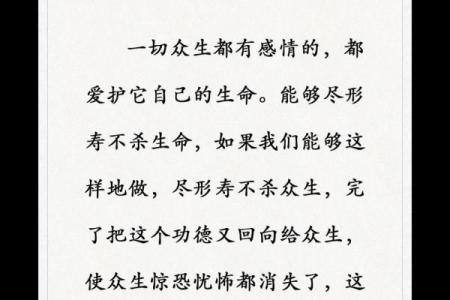 一切众生都有感情的，都
爱护它自己的生命。能够尽形
寿不杀生命，如果我们能够这
样地做，尽形寿不杀众生，完
了把这个功德又回向给众生，
使众生惊恐忧怖都消失了，这